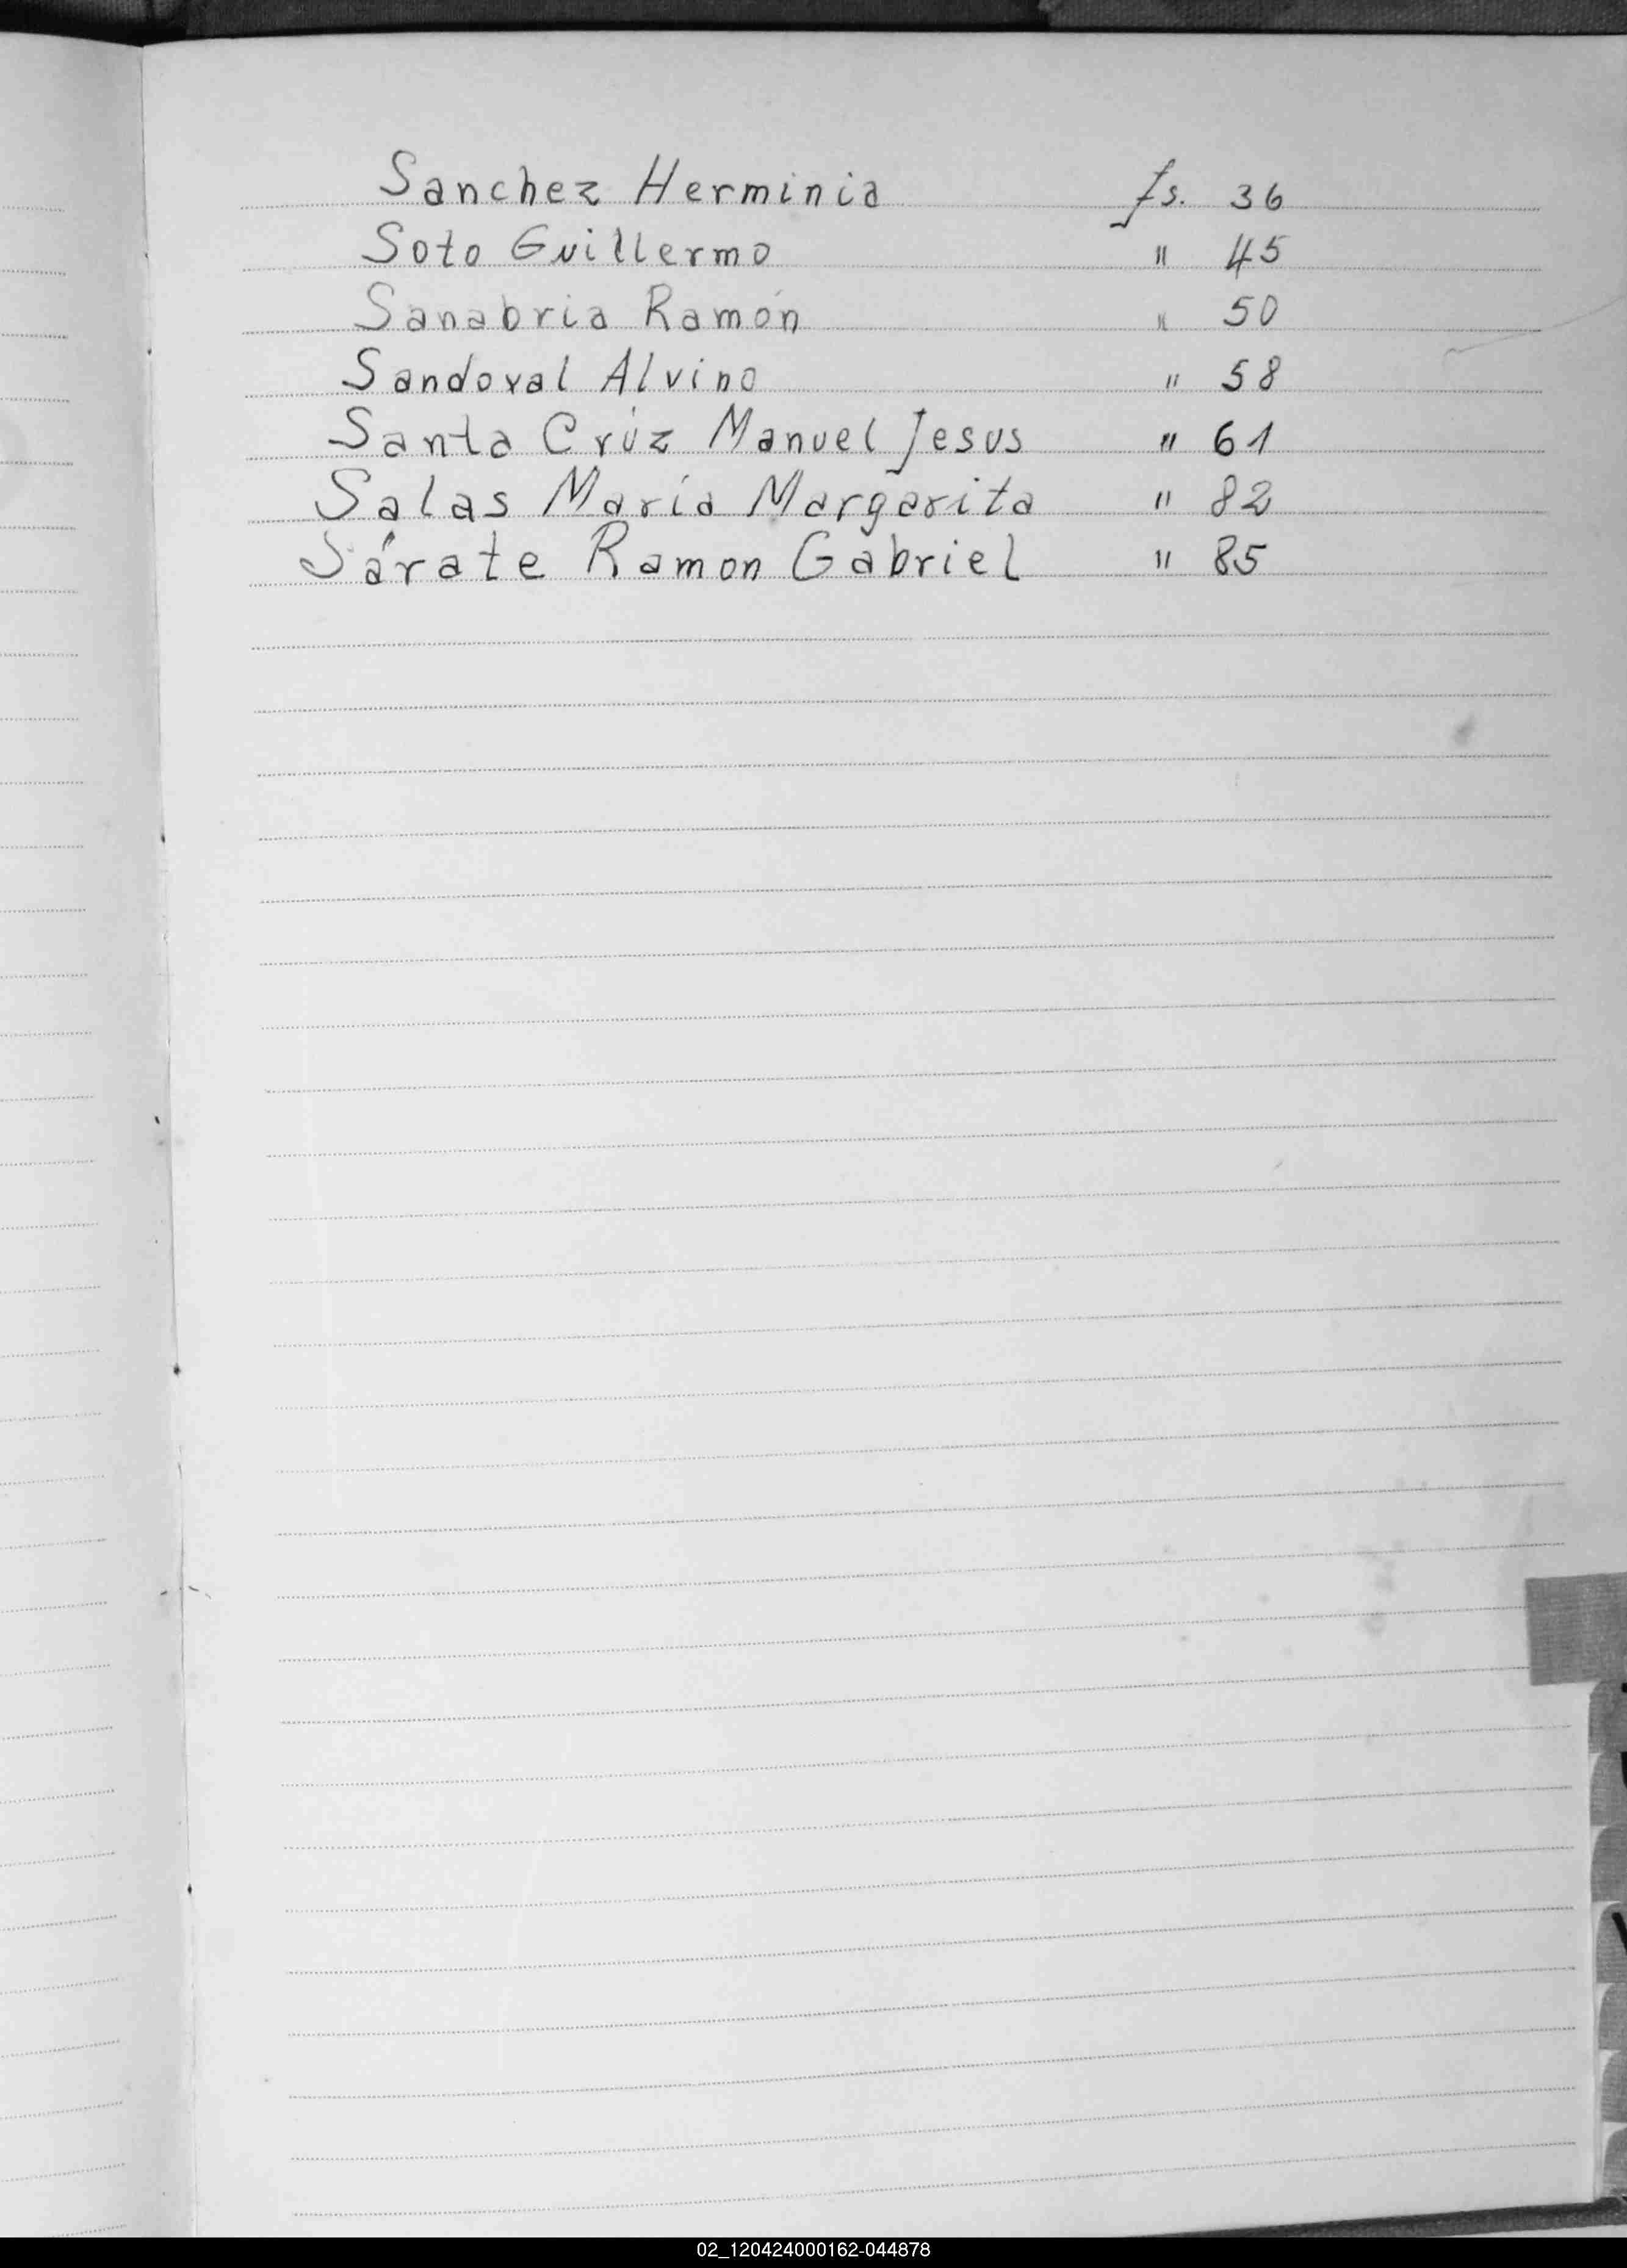 Sanchez Herminia fs. 36
Soto Guillermo " 45
Sanabria Ramón " 50
Sandoval Alvino " 58
Santa Crúz Manuel Jesus " 61
Salas María Margarita " 82
Sárate Ramon Gabriel " 85
02_120424000162-044878